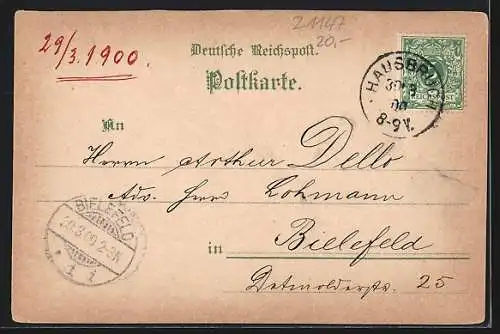 Z1147
20,-
29/3.1900.
Deutsche Reichspost.
Postkarte.
HAUSBRUCH
30 3
00
8-9V.
REICHSPOST
An
Herrn Arthur Dello
Adr. Herr Lohmann
in Bielefeld
Detmolderstr. 25
BIELEFELD
30.3.00.2-3N
* 1 i